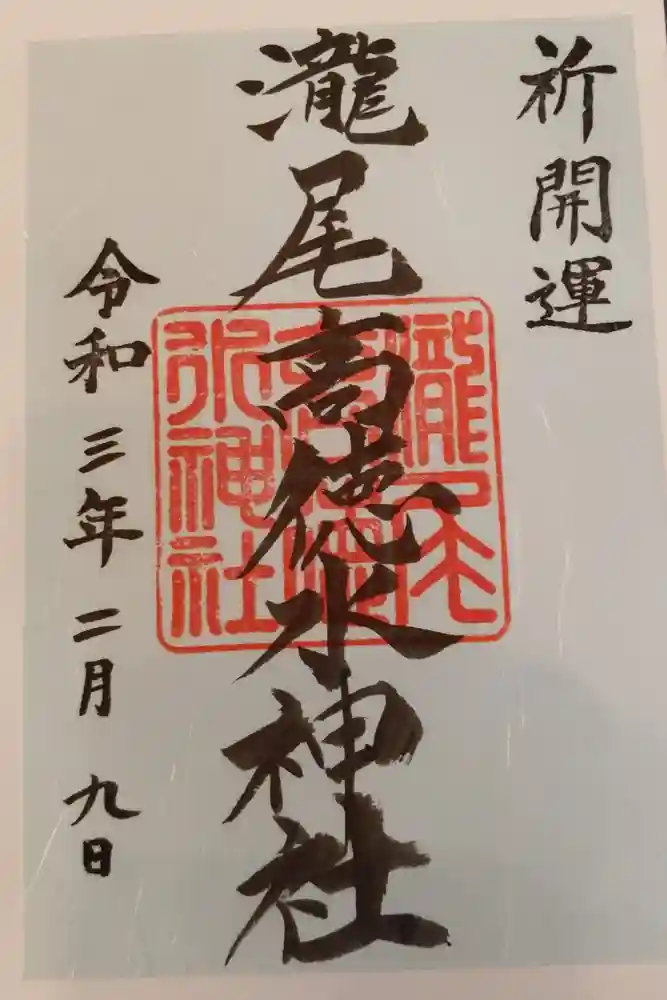 祈開運
瀧尾高德水神社
瀧尾
高德
水神社
令和三年二月九日